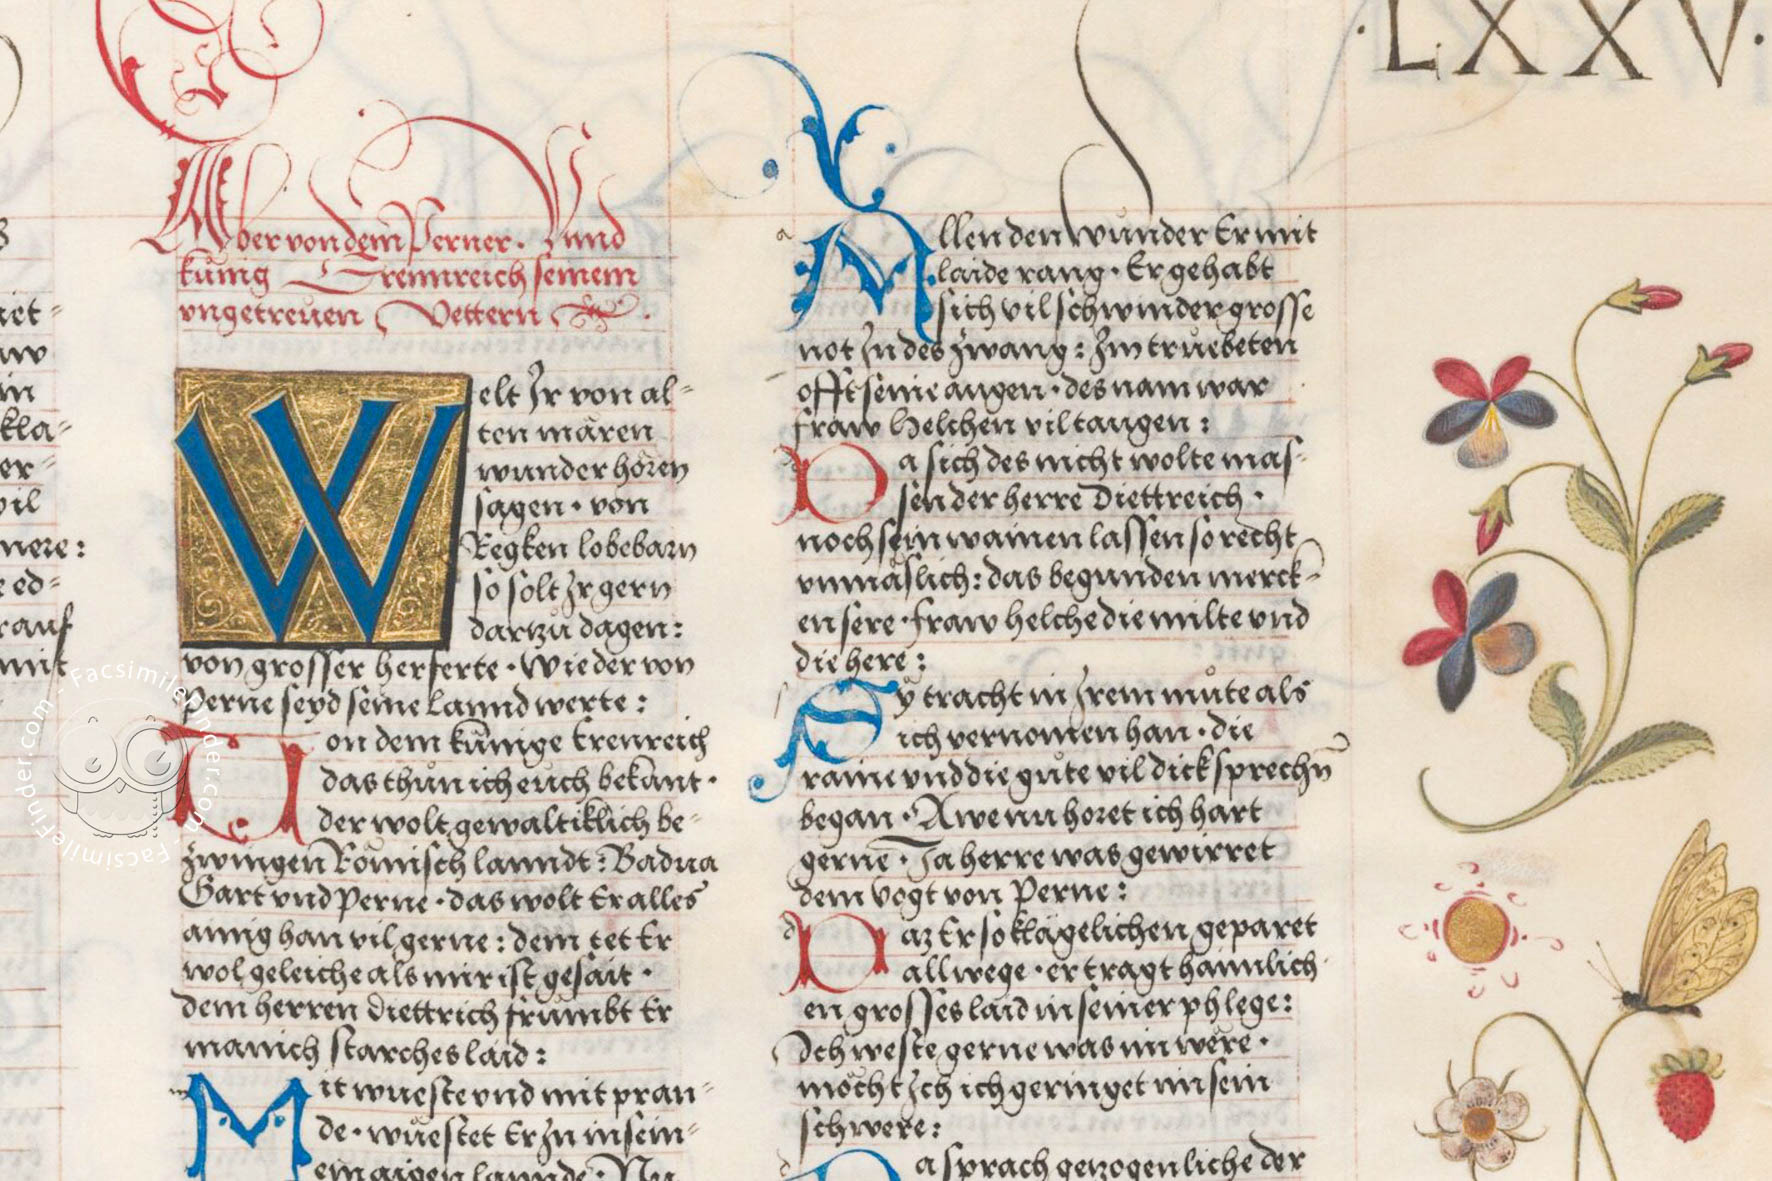 LXXV.
Aber von dem Perner. Vnnd
künig Erennreich seinem
vngetreuen Vettern
Welt Ir von al=
ten mären
wunder hören
sagen · von
Regken lobebärn
so solt Ir gern
dartzů dagen:
von grosser herferte · Wie der von
Perne seyd seine Lannd werte:
Von dem künige Erenreich
das thůn ich euch bekant ·
der wolt gewaltiklich be=
zwingen Römisch lanndt: Badua
Gart vnd Perne · das wolt Er alles
ainig han vil gerne: dem tet Er
wol geleiche als mir ist gesait ·
dem herren Diettrich frümbt Er
manich starches laid:
m
Mit wueste vnd mit pran=
de · wüestet Er In in sein=
em aigen lannde · Nu
a
Allen den wunder Er mit
laide rang · Er gehabt
sich vil schwinder grosse
not In des zwang: Im trůebeten
offt seine augen · des nam war
fraw Helchen vil taugen:
Da sich des nicht wolte mas=
sen der herre Diettreich ·
noch sein wainen lassen so recht
vnmäslich: das begunden merck=
en sere · fraw helche die milte vnd
die here:
Sy tracht in Irem můte als
ich vernomen han · die
raine vnd die gůte vil dick sprechn̄
began · Awe nu horet ich hart
gerne · Ja herre was gewirret
dem Vogt von Perne:
d
Daz Er so klägelichen geparet
allwege · er tragt haimlich
en grosses laid in seiner phlege:
Ich weste gerne was im wëre ·
möcht Ich ich geringet im sein
schwere:
d
Da sprach getzogenliche der
iet=
aw
in
kla=
er=
vil
nere:
e ed=
rauf
mit
FacsimileFinder.com - FacsimileFinder.com